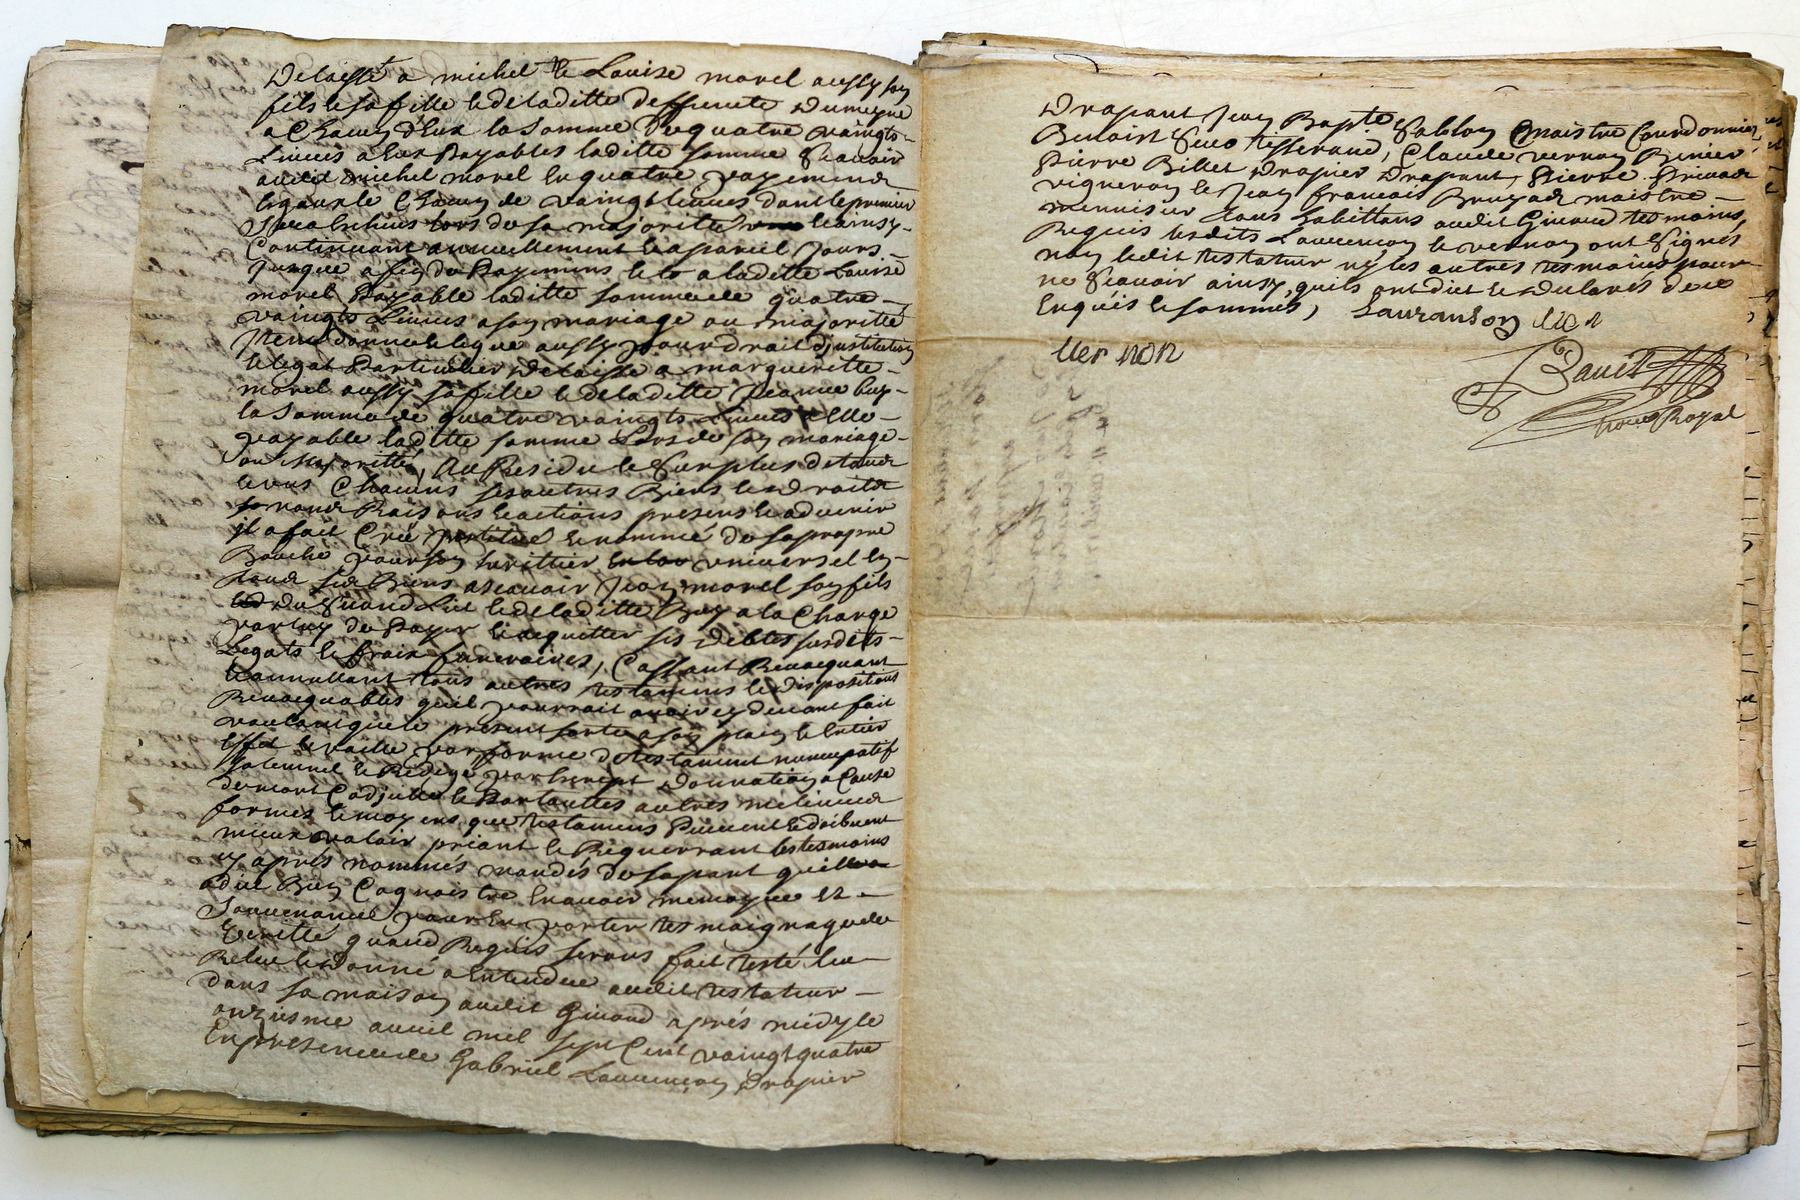 Delaissé a michel & Louise morel aussy son
fils & sa fille & de laditte deffuncte Dumeyne
a Chacun d'Eux la Somme de quatre vaingts
Livres a Eux Payables laditte somme Scavoir
audit michel morel En quatre payements
Egaux de Chacun de vaingt livres dont le premier
lors de sa majoritté & ainsy
Continuant annuellement & a pareil Jours
Jusque a fin de Payemens & a laditte Louise
morel Payable laditte somme de quatre
vaingts Livres a son mariage ou majoritté
Item donne & legue aussy pour droit d'institution
& legat Particulier Delaisse a margueritte
morel aussy sa fille & de laditte Jeanne Buy
la Somme de quatre vaingts Livres a Elle
payable laditte somme Lors de son mariage
ou Majoritté, Au Residu & Surplus de touts
& uns Chacuns ses autres Biens & Droits
noms Raisons & actions presens & advenir
il a fait Créé & nommé de sa propre
Bouche pour son herittier universel En
touts ses Biens ascavoir Jean morel son fils
du Second Lict & de laditte Buy a la Charge
par luy de Payer & acquitter ses Debtes susdits
Legats & fraix funeraires, Cassant Revocquant
& annullant tous autres testamens & Dispositions
Revocquables quil pourrait avoir cy devant fait
voulant que le present sorte a son plain & Entier
Effet & vaille par forme de testament nuncupatif
solemnel & Redigé par Escript Donnation a Cause
de mort Codicille & Par touttes autres melieures
formes & moyens que testamens Peuvent & doibvent
mieux valoir priant & Requerrant les tesmoins
cy aprés nommés mandés de sa part quil
a dit Bien Cognoistre En avoir memoyre Et
Souvenance pour En porter tesmoignage de
Veritté quand Requis seront fait testé leu
Releu & Donné a Entendre audit testateur
dans sa maison audit Givord aprés midy le
onziesme avril mil sept Cent vaingt quatre
En presence de Gabriel Laurençon Drapier
Drapant Jean Bapte Sablon maistre Courdonnier
Benoist tisserand, Claude vernon
Pierre Billet Drapier Drapant, Pierre
vigneron & Jean francois maistre
menuisier tous habittans audit Givord tesmoins
Requis lesdits Laurençon & vernon ont Signés
non ledit testateur ny les autres tesmoins pour
ne Scavoir ainsy quils ont dict & Declarés de ce
Enquéis & sommés,
Lauranson
vernon
nore Royal